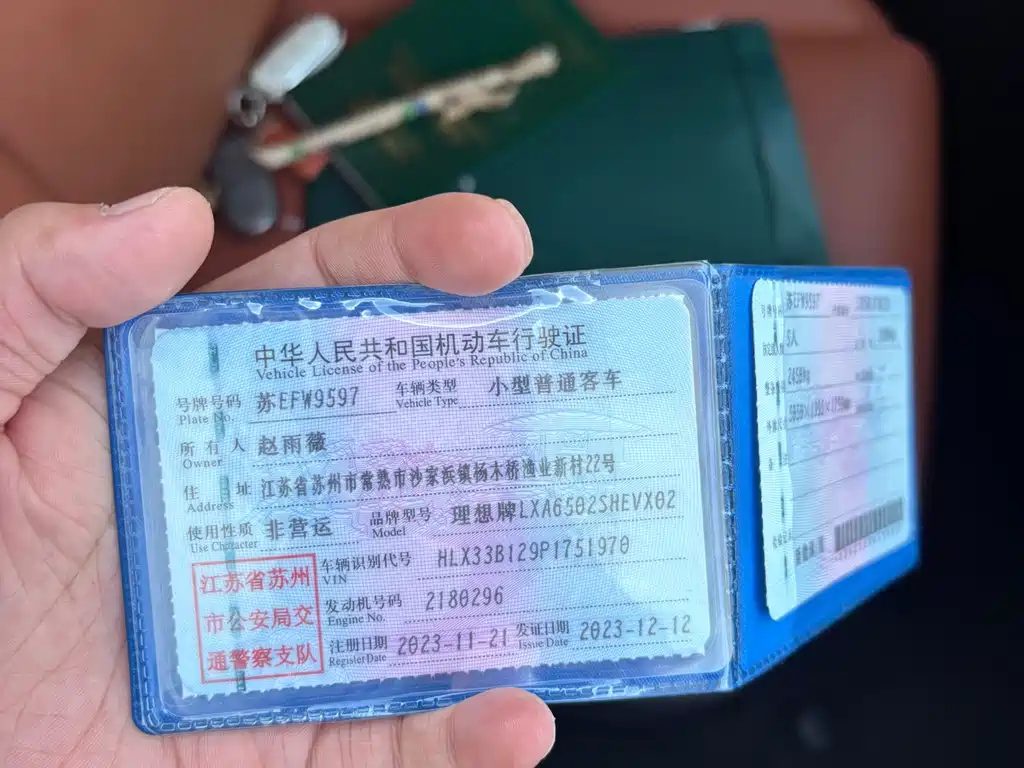 中华人民共和国机动车行驶证
Vehicle License of the People's Republic of China
号牌号码 苏EFW9597 车辆类型 小型普通客车
Plate No. Vehicle Type
所有人 赵雨薇
Owner
住址 江苏省苏州市常熟市沙家浜镇杨木桥渔业新村22号
Address
使用性质 非营运 品牌型号 理想牌LXA6502SHEVX02
Use Character Model
车辆识别代号 HLX33B129P1751970
VIN
发动机号码 2180296
Engine No.
注册日期 2023-11-21 发证日期 2023-12-12
Register Date Issue Date
江苏省苏州
市公安局交
通警察支队
苏EFW9597
5人